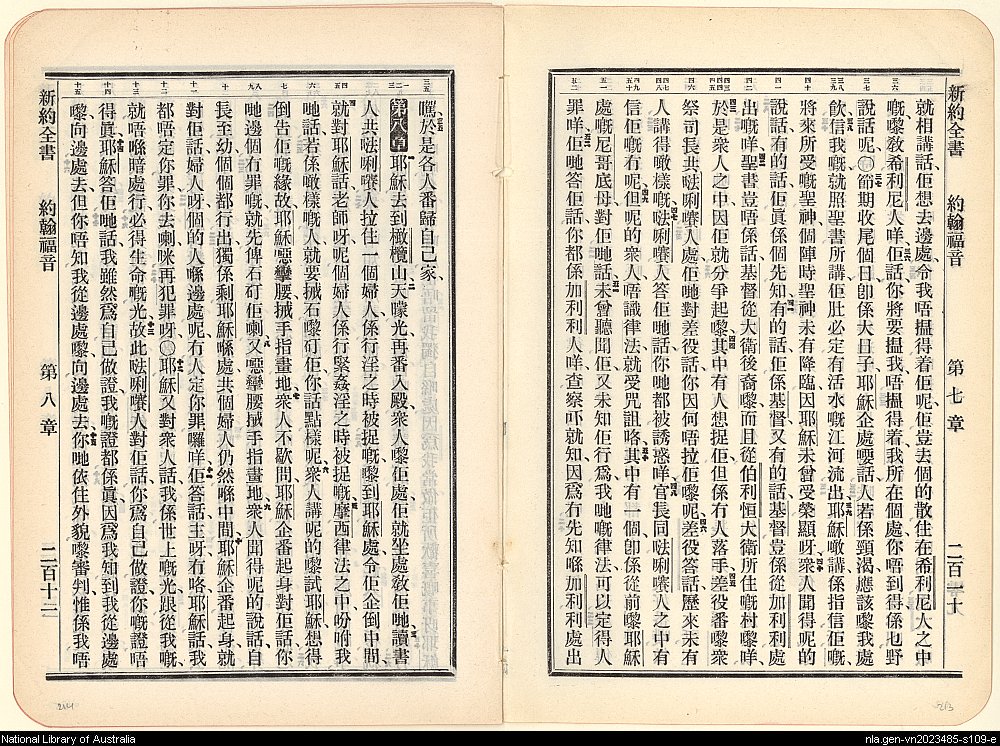 新約全書 約翰福音 第七章 二百一十
就相講話佢想去邊處令我唔搵得着佢呢佢豈去個的散住在希利尼人之中
嘅嚟敎希利尼人咩佢話你將要搵我唔搵得着我所在個處你唔到得係乜野
說話呢節期收尾個日卽係大日子耶穌企處嗌話人若係頸渴應該嚟我處
飲信我嘅就照聖書所講佢肚必定有活水嘅江河流出耶穌噉講係指信佢嘅
將來所受嘅聖神個陣時聖神未有降臨因耶穌未曾受榮顯呀衆人聞得呢的
說話有的話佢係眞係個先知有的話佢係基督又有的話基督豈係從加利利處
出嘅咩聖書豈唔係話基督從大衛後裔嚟而且從伯利恒大衛所住嘅村嚟咩
於是衆人之中因佢就分爭起嚟其中有人想捉佢但係有人落手差役番嚟衆
祭司長共𠵽唎㘔人處佢哋對差役話你因何唔拉佢嚟呢差役答話歷來未有
人講得噉樣嘅𠵽唎㘔人答佢哋話你哋都被誘惑咩官長同𠵽唎㘔人之中有
信佢嘅有呢但呢的衆人唔識律法就受咒詛咯其中有一個卽係從前嚟耶穌
處嘅尼哥底母對佢哋話未曾聽聞佢又未知佢行爲我哋嘅律法可以定得人
罪咩佢哋答佢話你都係加利利人咩查察吓就知因爲有先知喺加利利處出
新約全書 約翰福音 第八章 二百十二
嘅於是各人番歸自己家
第八章耶穌去到橄欖山天曚光再番入殿衆人嚟佢處佢就坐處敎佢哋讀書
人共𠵽唎㘔人拉住一個婦人係行淫之時被捉嘅嚟到耶穌處令佢企倒中間
就對耶穌話老師呀呢個婦人係行緊姦淫之時被捉嘅摩西律法之中吩咐我
哋話若係噉樣嘅人就要搣石嚟矴佢你話點樣呢衆人講呢的嚟試耶穌想得
倒告佢嘅緣故耶穌惡攣腰搣手指畫地衆人不歇問耶穌企番起身對佢話你
哋邊個冇罪嘅就先俾石矴佢喇又惡攣腰搣手指畫地衆人聞得呢的說話自
長至幼個個都行出獨係剩耶穌喺處共個婦人仍然喺中間耶穌企番起身就
對佢話婦人呀個的人喺邊處呢冇人定你罪囉咩佢答話主呀冇咯耶穌話我
都唔定你罪你去喇咪再犯罪呀耶穌又對衆人話我係世上嘅光跟從我嘅
就唔喺暗處行必得生命嘅光故此𠵽唎㘔人對佢話你爲自己做證你嘅證唔
得眞耶穌答佢哋話我雖然爲自己做證我嘅證都係眞因爲我知到我從邊處
嚟向邊處去但你唔知我從邊處嚟向邊處去你哋依住外貌嚟審判惟係我唔
214
213
National Library of Australia
nla.gen-vn2023485-s109-e